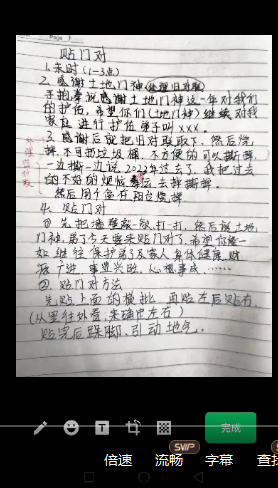 贴门对
1.未时 (1-3点)
2.感谢土地门神(处理旧对联)
手抱拳说感谢土地门神这一年对我们
的护佑,希望你们(土地门神)继续对我
家庭进行护佑 弟子叫XXX.
3.感谢后就把旧对联取下,然后烧
掉,不可扔垃圾桶,不方便的可以撕掉,
一边撕一边说,2022年过去了,我把过去
的不好的烦恼 去掉撕掉。
然后用个盆在阳台烧掉
4.贴门对
① 先把墙壁敲一敲,打一打,然后说土地
门神,弟子今天要来贴门对了,希望你能一
如继往保护弟子及家人身体健康,财
源广进,事业兴旺,心想事成……
② 贴门对方法
先贴上面的横批,再贴左后贴右,
(从里往外看,来确定左右)
贴完后跺脚,引动地气。
完成
SVIP
SVIP
倍速
流畅
字幕
查找